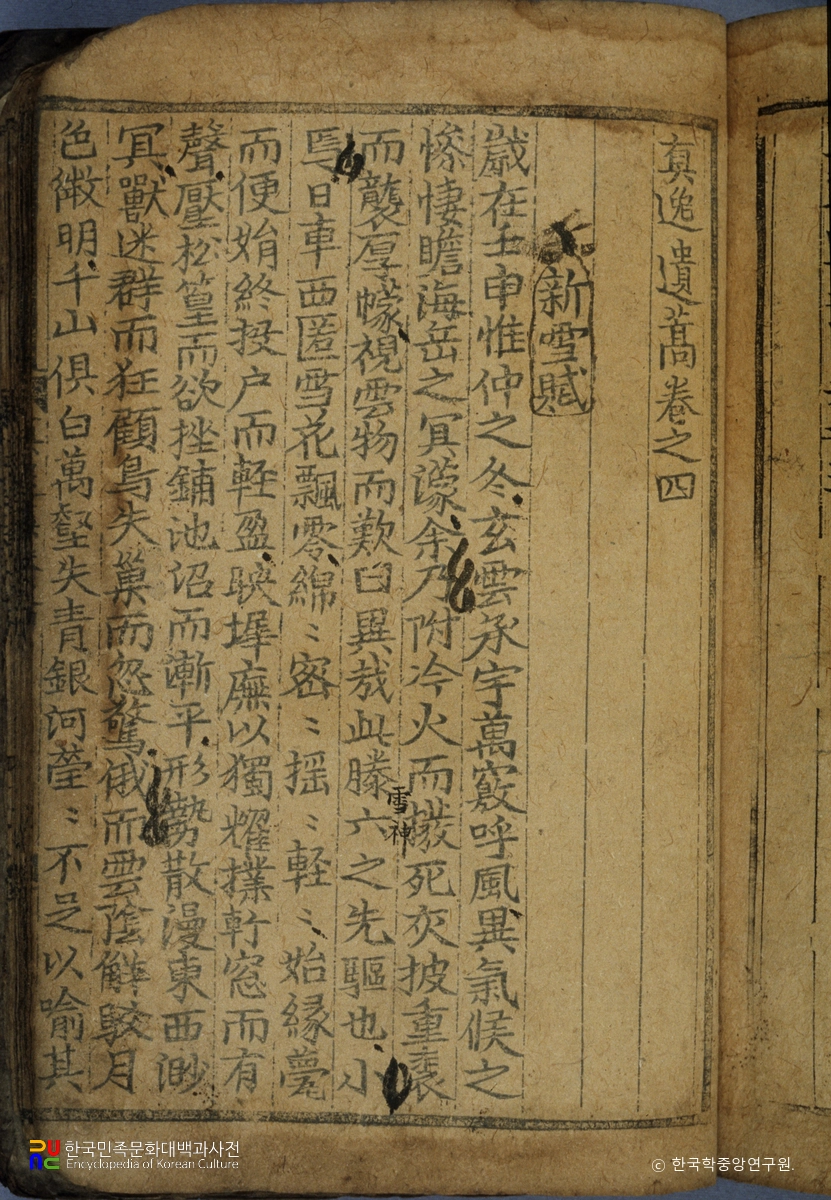 眞逸遺藁卷之四
新雪賦
歲在壬申惟仲之冬玄雲承宇萬竅呼風異氣候之
慘悽瞻海岳之冥濛余乃附冷火而撥死灰披重裘
而襲厚幪視雲物而歎曰異哉此滕六之先驅也小
雪神
焉日車西匿雪花飄零綿〻密〻搖〻輕〻始緣甍
而便始終投户而輕盈映墀廡以獨耀撲軒窓而有
聲壓松篁而欲挫鋪池沼而漸平形勢散漫東西渺
冥獸迷群而狂顧鳥失巢而忽驚俄而雲陰解駁月
色微明千山俱白萬壑失青銀河瑩〻不足以喻其
한국민족문화대백과사전
Encyclopedia of Korean Culture
© 한국학중앙연구원.